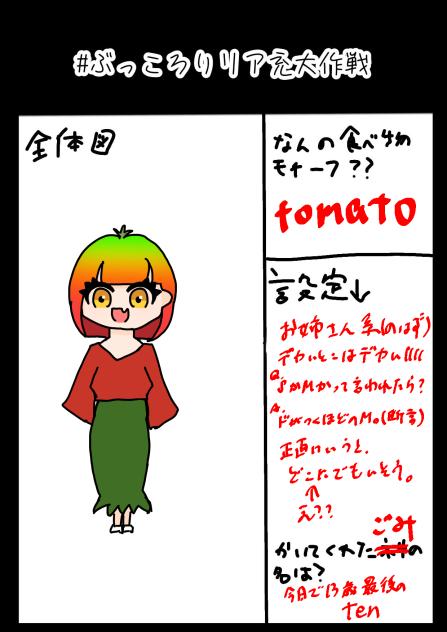 #ぶっころりリア充大作戦
全体図
なんの食べ物
モチーフ??
tomato
設定↓
お姉さん系(のはず)
デカいとこはデカい((((
Q. SかMかって言われたら?
A. ドがつくほどのM。(断言)
正直にいうと、
どこにでもいそう。
↑
え??
ごみ
かいてくれたネ申の
名は?
今日で13歳最後の
ten